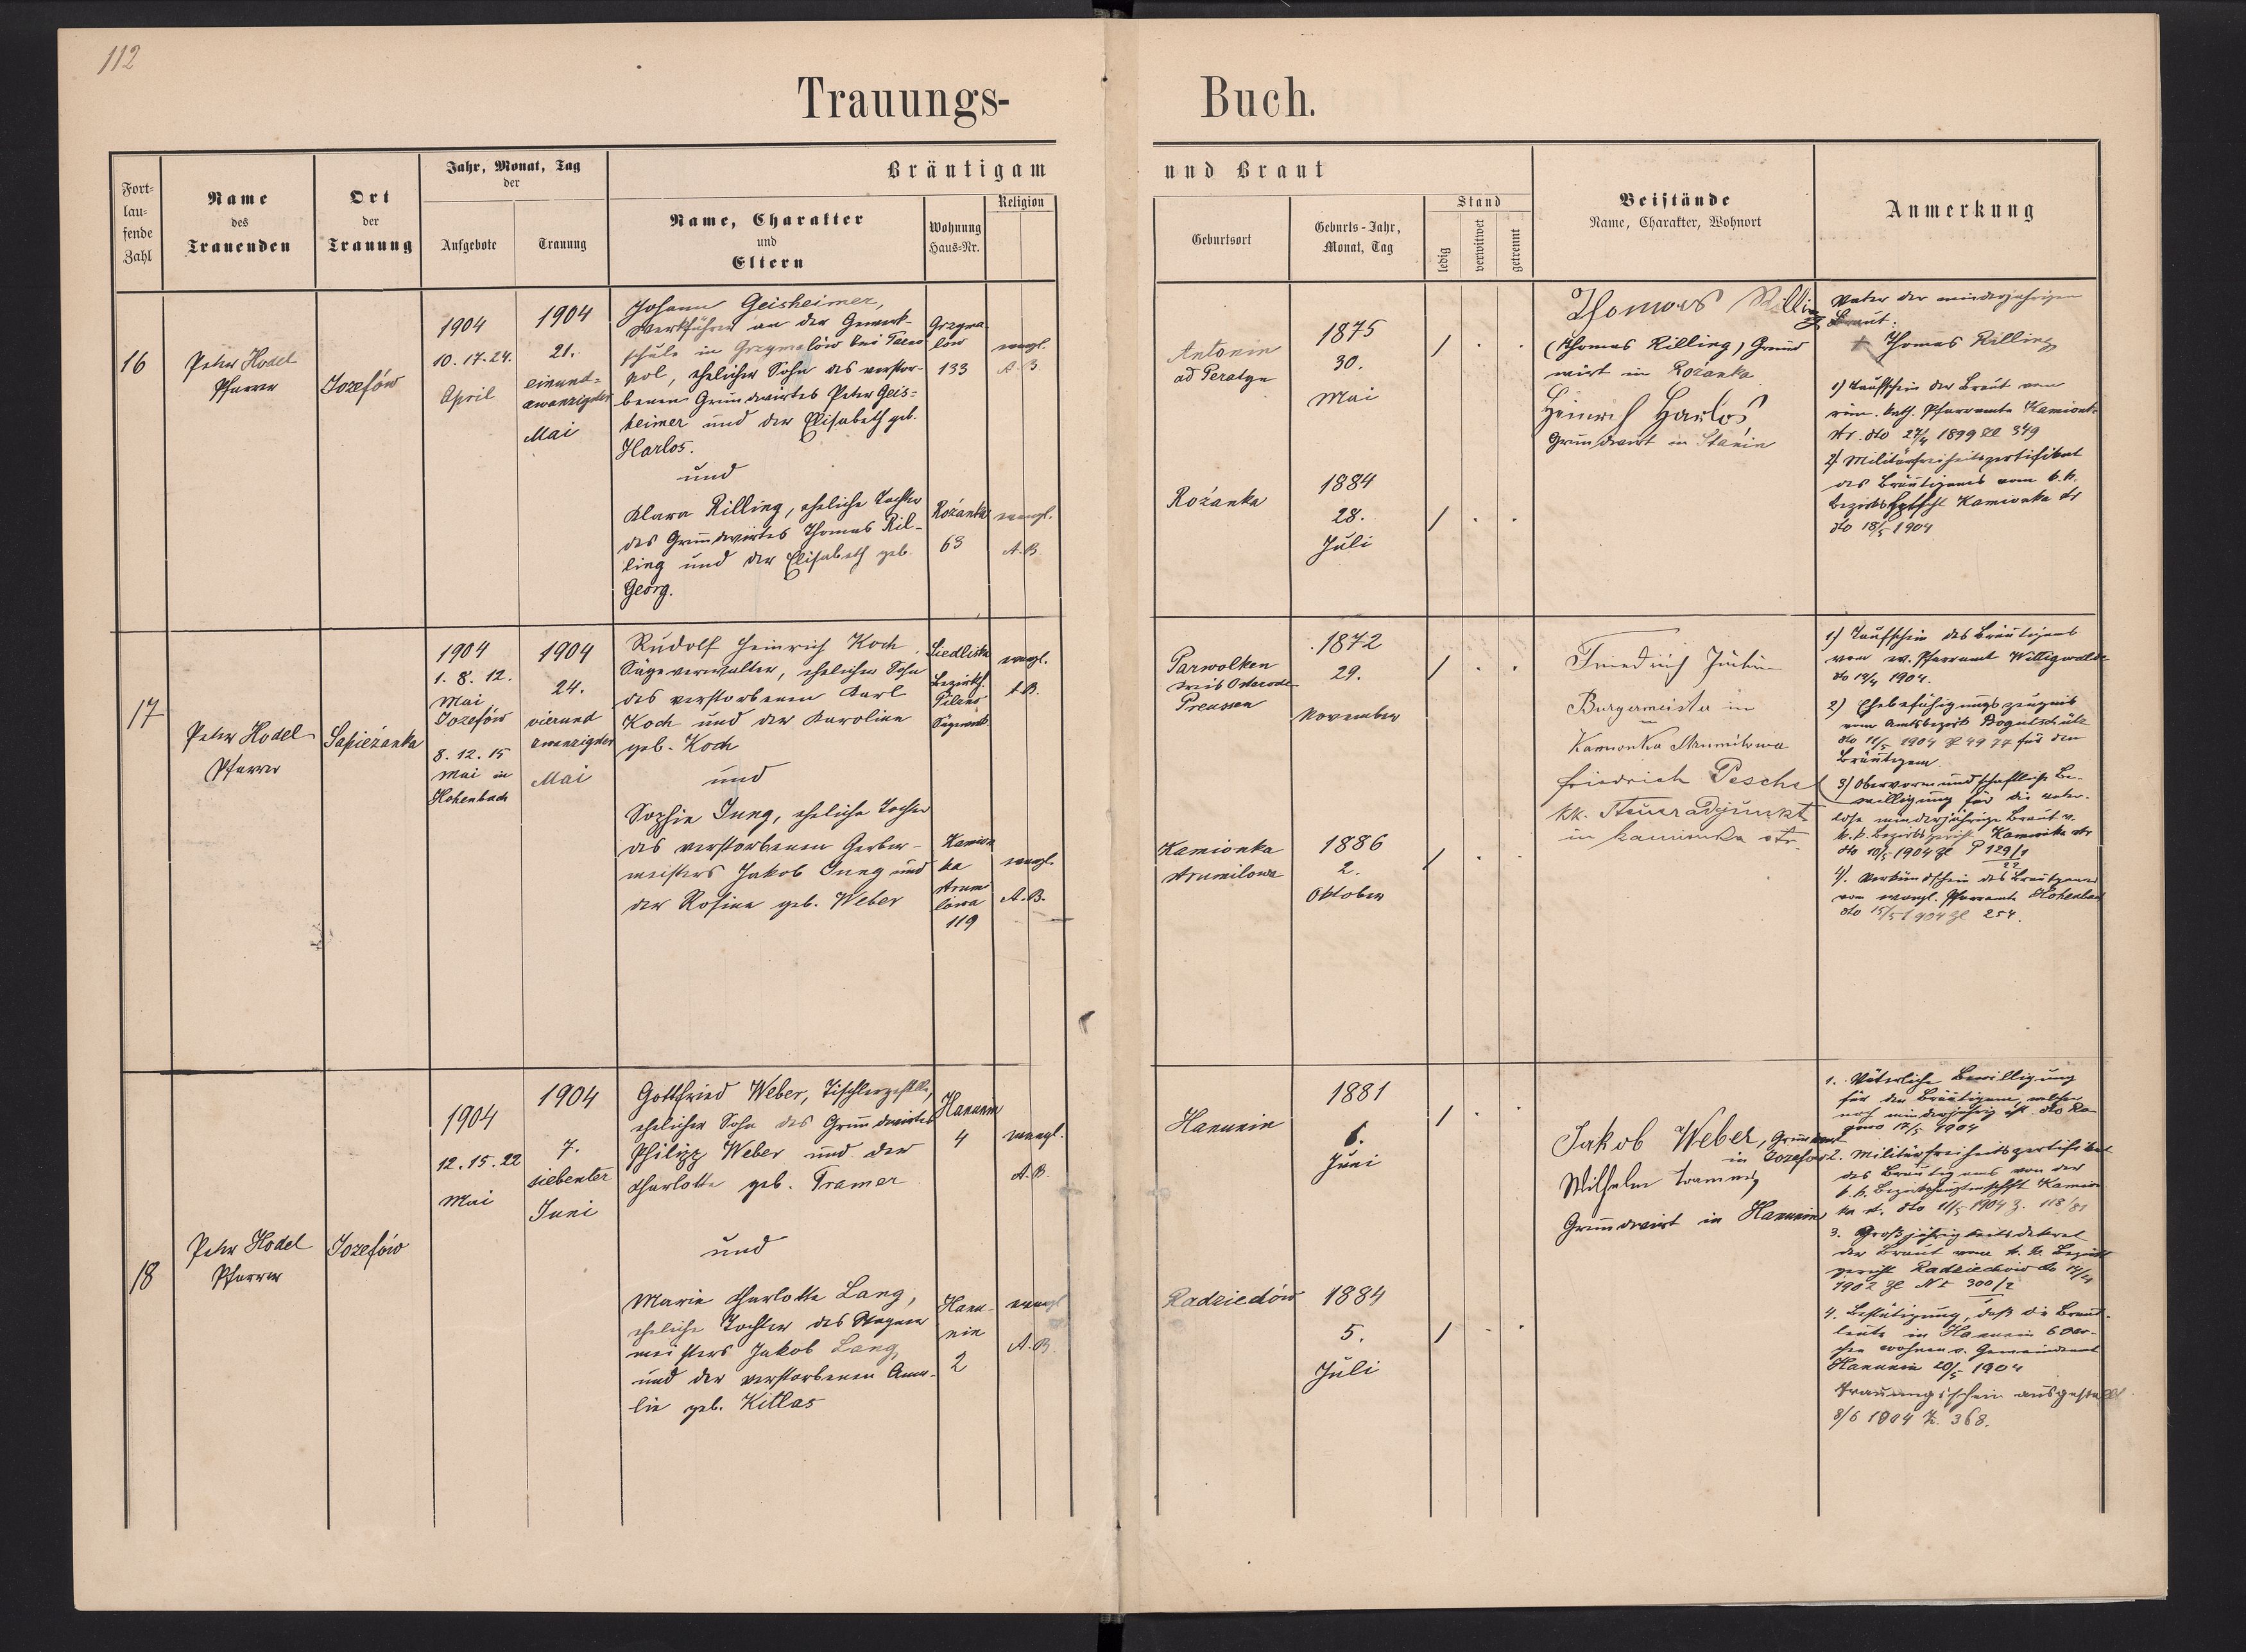 112
Trauungs-Buch.
Fort-
lau-
fende
Zahl
Name
des
Trauenden
Ort
der
Trauung
Jahr, Monat, Tag
der
Aufgebote
Trauung
Bräutigam und Braut
Name, Charakter
und
Eltern
Wohnung
Haus-Nr.
Religion
Geburtsort
Geburts-Jahr,
Monat, Tag
Stand
ledig
verwitwet
getrennt
Beistände
Name, Charakter, Wohnort
Anmerkung
16
Peter Hodel
Pfarrer
Jozefów
1904
10. 17. 24.
April
1904
21.
einund-
zwanzigster
Mai
Johann Geisheimer,
Werkführer an der Gewerk-
schule in Grzymalów bei Tarno
pol, ehelicher Sohn des verstor-
benen Grundwirtes Peter Geis-
heimer und der Elisabeth geb.
Harlos.
und
Klara Rilling, eheliche Tochter
des Grundwirtes Thomas Ril-
ling und der Elisabeth geb.
Georg.
Grzyma
low
133
evangl.
A. B.
Rożanka
63
evangl.
A. B.
Antonin
ad Peratyn
1875
30.
Mai
Rożanka
1884
28.
Juli
Thomas Rilling
(Thomas Rilling) Grund
wirt in Rożanka
Heinrich Harlos
Grundwirt in Stanin
Vater der minderjährigen
Braut:
Thomas Rilling
1) Taufschein der Braut vom
röm. kath. Pfarramte Kamionk.
str. dto 27/4 1899 Zl 349
2) Militärfreiheitszertifikat
des Bräutigams vom k. k.
Kamionka str
dto 18/5 1904
17
Peter Hodel
Pfarrer
Sapieżanka
1904
1. 8. 12.
Mai
Jozefów
8. 12. 15
Mai in
Hohenbach
1904
24.
vierund
zwanzigster
Mai
Rudolf Heinrich Koch,
Sägeverwalter, ehelicher Sohn
des verstorbenen Karl
Koch und der Karoline
geb. Koch
und
Sophie Jung, eheliche Tochter
des verstorbenen Gerber-
meisters Jakob Jung und
der Rosina geb. Weber
Siedliska
Bezirk
Pilzno
Sägewerk
evangl.
A. B.
Kamion
ka
strum
ilowa
119
evangl.
A. B.
Parwolken
Kreis Osterode
Preussen
1872
29.
November
Kamionka
strumilowa
1886
2.
Oktober
Friedrich
Burgermeister in
Kamionka Strumilowa
Friedrich Peschel
kk. Steueradjunkt
in Kamionka str.
1) Taufschein des Bräutigams
vom ev. Pfarramt Wittigwalde
dto 14/4 1904.
2) Ehebefähigungszeugnis
vom Amtsbezirk Bogutschütz
dto 11/5 1904 Z 4974 für den
Bräutigam.
3) Obervormundschaftliche Be-
willigung für die vater-
lose minderjährige Braut v.
k. k. Bezirksgericht Kamionka str
dto 10/5 1904 Zl P 129/1
22
4). Verkündschein des Bräutigams
vom evangl. Pfarramte Hohenbach
dto 15/5 1904 Zl 254.
18
Peter Hodel
Pfarrer
Jozefów
1904
12. 15. 22
Mai
1904
7.
siebenter
Juni
Gottfried Weber, Tischlergeselle,
ehelicher Sohn des Grundwirtes
Philipp Weber und der
Charlotte geb. Tramer
und
Marie Charlotte Lang,
eheliche Tochter des Wagner
meisters Jakob Lang
und der verstorbenen Ama-
lie geb. Kitlas
Hanunin
4
evangl.
A. B.
Hanu-
nin
2
evangl
A. B.
Hanunin
1881
6.
Juni
Radziechów
1884
5.
Juli
Jakob Weber, Grundwirt
in Jozefow
Wilhelm
Grundwirt in Hanunin
1. Väterliche Bewilligung
für den Bräutigam, welcher
noch minderjährig ist dto
12/5 1904
2. Militärfreiheitszertifikat
des Bräutigams von der
k. k. Bezirkshauptmannschft Kamion
ka st. dto 11/5 1904 Z. 118/81
3. Großjährigkeitsdekret
der Braut vom k. k. Bezirks
gericht Radziechow dto 14/4
1902 Zl Nc 300/2
4. Bestätigung, daß die Braut-
leute in Hanunin 6 Wo-
chen wohnen v. Gemeindeamt
Hanunin 20/5 1904
Trauungsschein ausgestellt
8/6 1904 Z. 368.